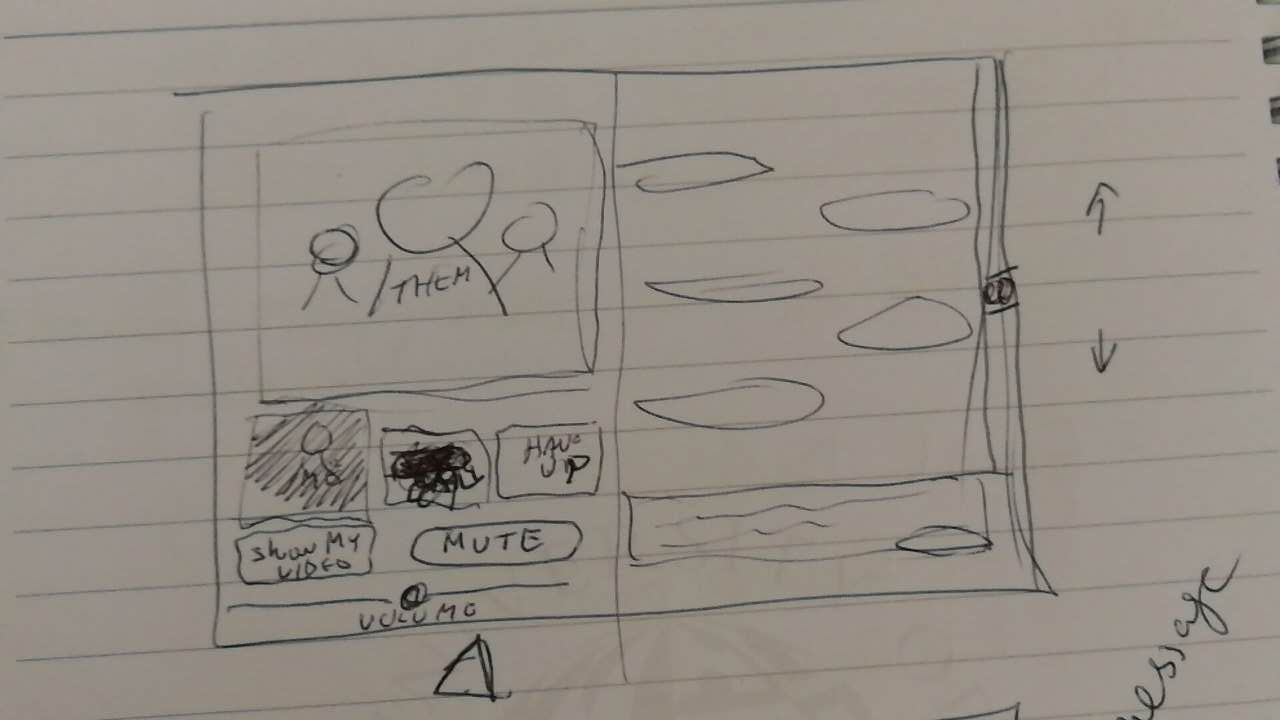 THEM
ME
HANG
UP
Show MY
VIDEO
MUTE
VOLUME